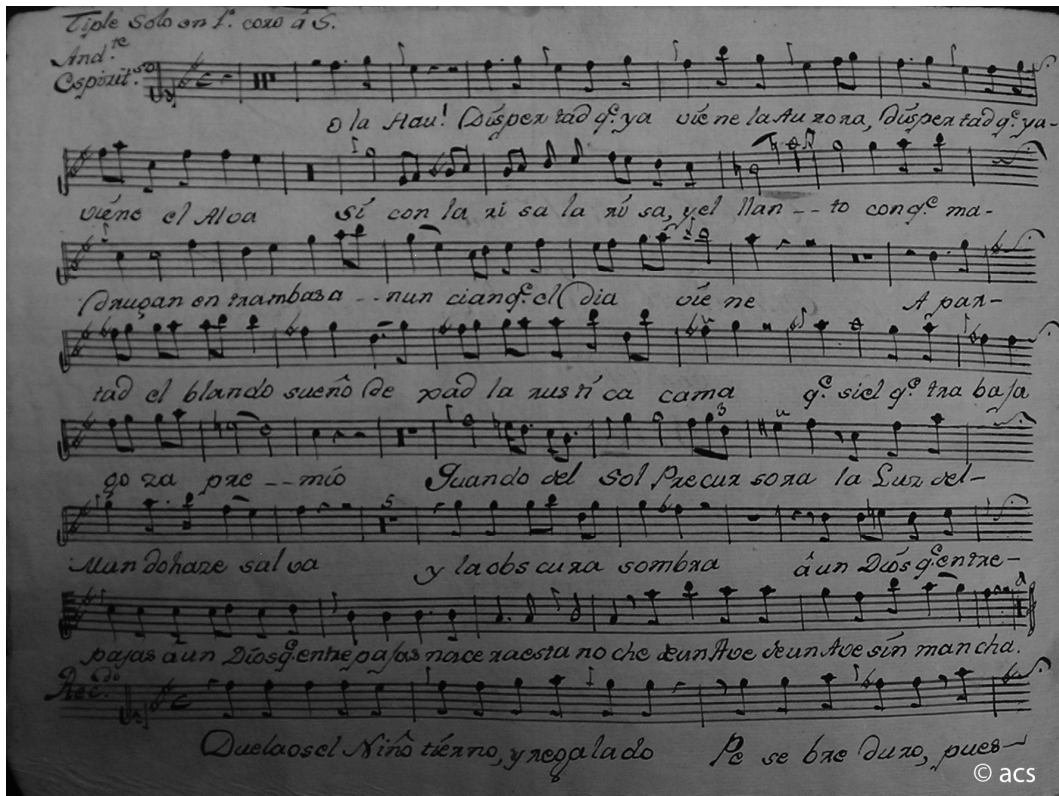 Tiple Solo en 1.º coro â 5.
And.te
Espirit.so
O la Hau! Dispertad q.e ya viene la Aurora, dispertad q.e ya-
viene el Alva si con la risa la risa, y el llan -- to con q.e ma-
drugan entrambas a -- nun cian q.e el dia viene A par-
tad el blando sueño de xad la rustica cama q.e si el q.e trabaja
goza pre -- mio Quando del Sol Precursora la Luz del-
Mundo haze salva y la obscura sombra â un Dios q.e entre-
pajas â un Dios q.e entre pajas nacera esta noche de un Ave de un Ave sin mancha.
Rec.do
Duelaos el Niño tierno, y regalado Pesebre duro, pues-
© acs